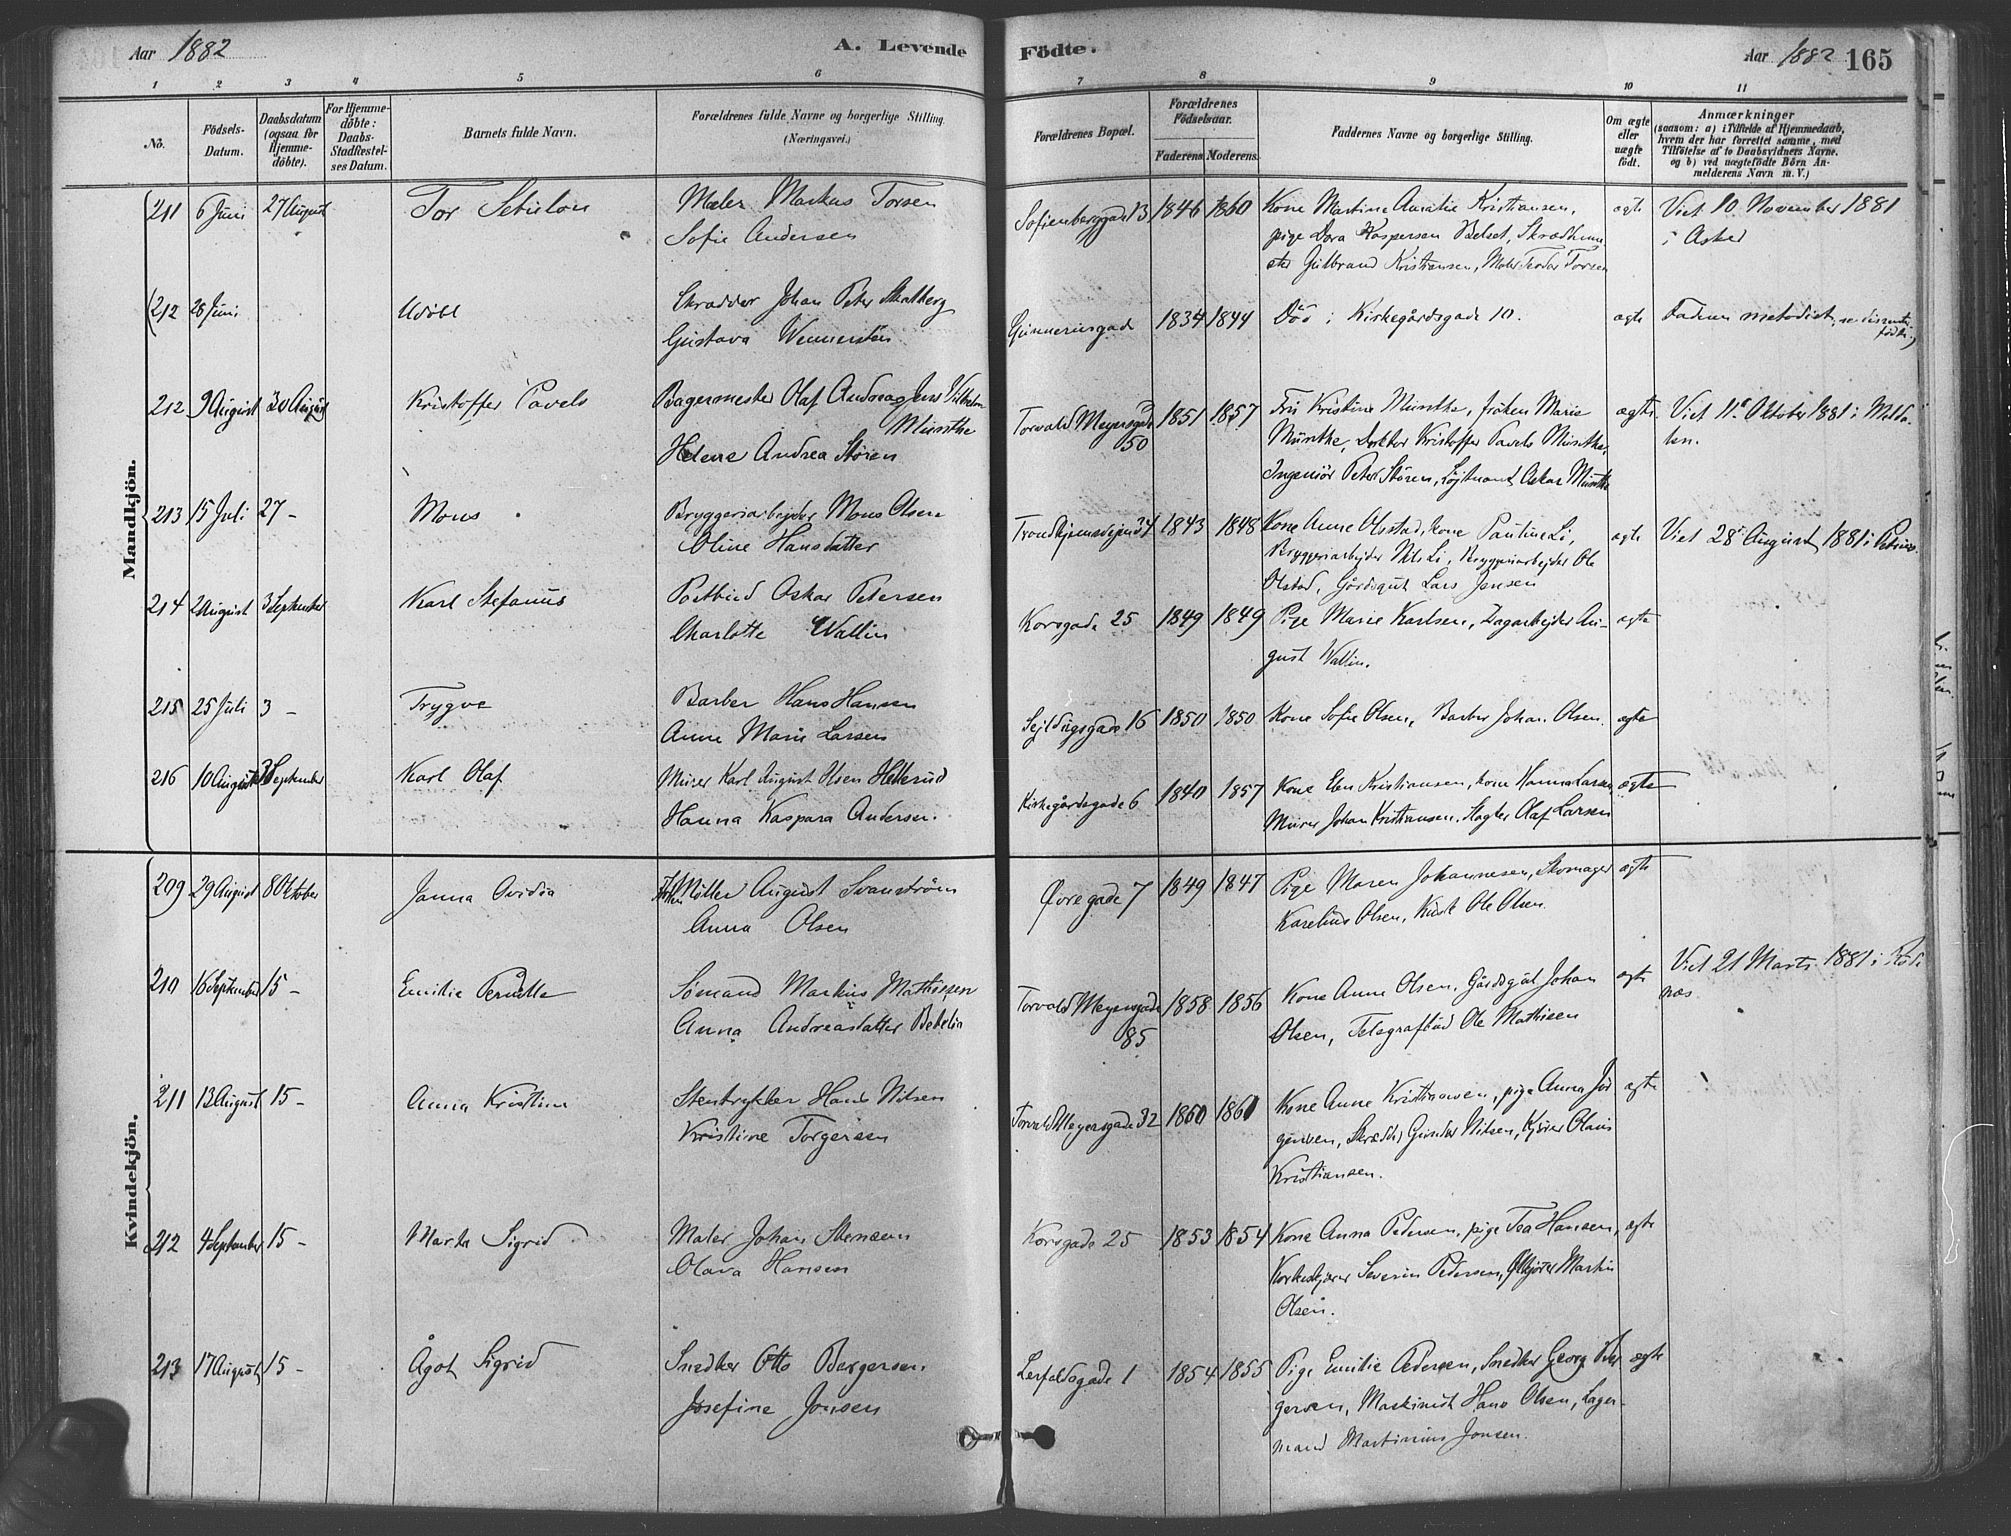 Aar 1882 A. Levende Födte. Aar 1882 165
1 2 3 4 5 6 7 8 9 10 11
No. Födsels-Datum. Daabsdatum (ogsaa for Hjemme-döbte). For Hjemme-döbte: Daabs-Stadfæstel-ses Datum. Barnets fulde Navn. Forældrenes fulde Navne og borgerlige Stilling. (Næringsvei.) Forældrenes Bopæl. Forældrenes Födselsaar. Faderens Moderens Faddernes Navne og borgerlige Stilling. Om ægte eller uægte födt. Anmærkninger (saasom: a) i Tilfælde af Hjemmedaab, hvem der har forrettet samme, med Tilföielse af to Daabsvidners Navne, og b) ved uægtefödte Börn An-melderens Navn m. V.)
Mandkjön.
211 6 Juni 27 August Tor Maler Markus Torsen Sofienberggade 13 1846 1860 Kone Martine Amalie Kristiansen, ægte Viet 10 November 1881
Sofie Andersen pige Dora Kaspersen i Asker
Gulbrand Kristiansen, Maler Teodor Torsen
(212 28 Juni Udöbt Skrædder Johan Peter Gunnerusgade 1834 1844 Död i Kirkegårdsgade 10. ægte Faderen metodist,
Gustava Wennersten
212 9 August 30 August Kristoffer Pavels Bagermester Olaf Andreas Jens Vilhelm Torvald Meyersgade 1851 1857 Fru Kristine Munthe, fröken Marie ægte Viet 11 Oktober 1881 i Melda-
Munthe 50 Munthe, Doktor Kristoffer Pavels Munthe, len.
Helene Andrea Stören Ingeniör Peter Stören, Löjtnant Oskar Munthe
213 15 Juli 27 - Mons Bryggeriarbejder Mons Olsen Trondhjemsvejen 34 1843 1848 Kone Anne Olsstad, kone Pauline Li, ægte Viet 28 August 1881 i Petrus.
Oline Hansdatter Bryggeriarbejder Nils Li, Bryggeriarbejder Ole
Olstad, Gårdsgut Lars Jensen
214 2 August 3 September Karl Stefanus Postbud Oskar Petersen Korsgade 25 1849 1849 Pige Marie Karlsen, Dagarbejder Au- ægte
Charlotte Wallin gust Wallin.
215 25 Juli 3 - Trygve Barber Hans Hansen Sejldugsgade 16 1850 1850 Kone Sofie Olsen, Barber Johan Olsen. ægte
Anne Marie Larsen
216 10 August 3 September Karl Olaf Murer Karl August Olsen Hellerud Kirkegårdsgade 6 1840 1857 Kone Elen Kristiansen, kone Hanna Larsen ægte
Hanna Kaspara Andersen. Murer Johan Kristiansen. Slagter Olaf Larsen
Kvindekjön.
209 29 August 8 Oktober Janna Ovidia Möller August Svanström Övregade 7 1849 1847 Pige Maren Johannesen, Skomager ægte
Anna Olsen Karelius Olsen, Kusk Ole Olsen.
210 16 September 15 - Emilie Pernille Sömand Markus Mathisen Torvald Meyersgade 1858 1856 Kone Anne Olsen, Gårdsgut Johan ægte Viet 21 Marts 1881 i Röd-
Anna Andreasdatter 85 Olsen, Telegrafbud Ole Mathisen næs
211 13 August 15 - Anna Kristine Stentrykker Hans Nilsen Torvald Meyersgade 32 1860 1861 Kone Anne Kristiansen, pige Anna Jör- ægte
Kristine Torgersen gensen, Skrædder Gunder Nilsen, Kjörer Olaus
Kristiansen.
212 4 September 15 - Marta Sigrid Maler Johan Stensen Korsgade 25 1853 1854 Kone Anna Pedersen, pige Tea Hansen, ægte
Olava Hansen Severin Pedersen, Ölkjörer Martin
Olsen.
213 17 August 15 - Ågot Sigrid Snedker Otto Bergersen Lerfaldsgade 1 1854 1855 Pige Emilie Pedersen, Snedker Georg Ber- ægte
Josefine Jonsen gersen, Maskinist Hans Olsen, Lager-
mand Martinius Jonsen.